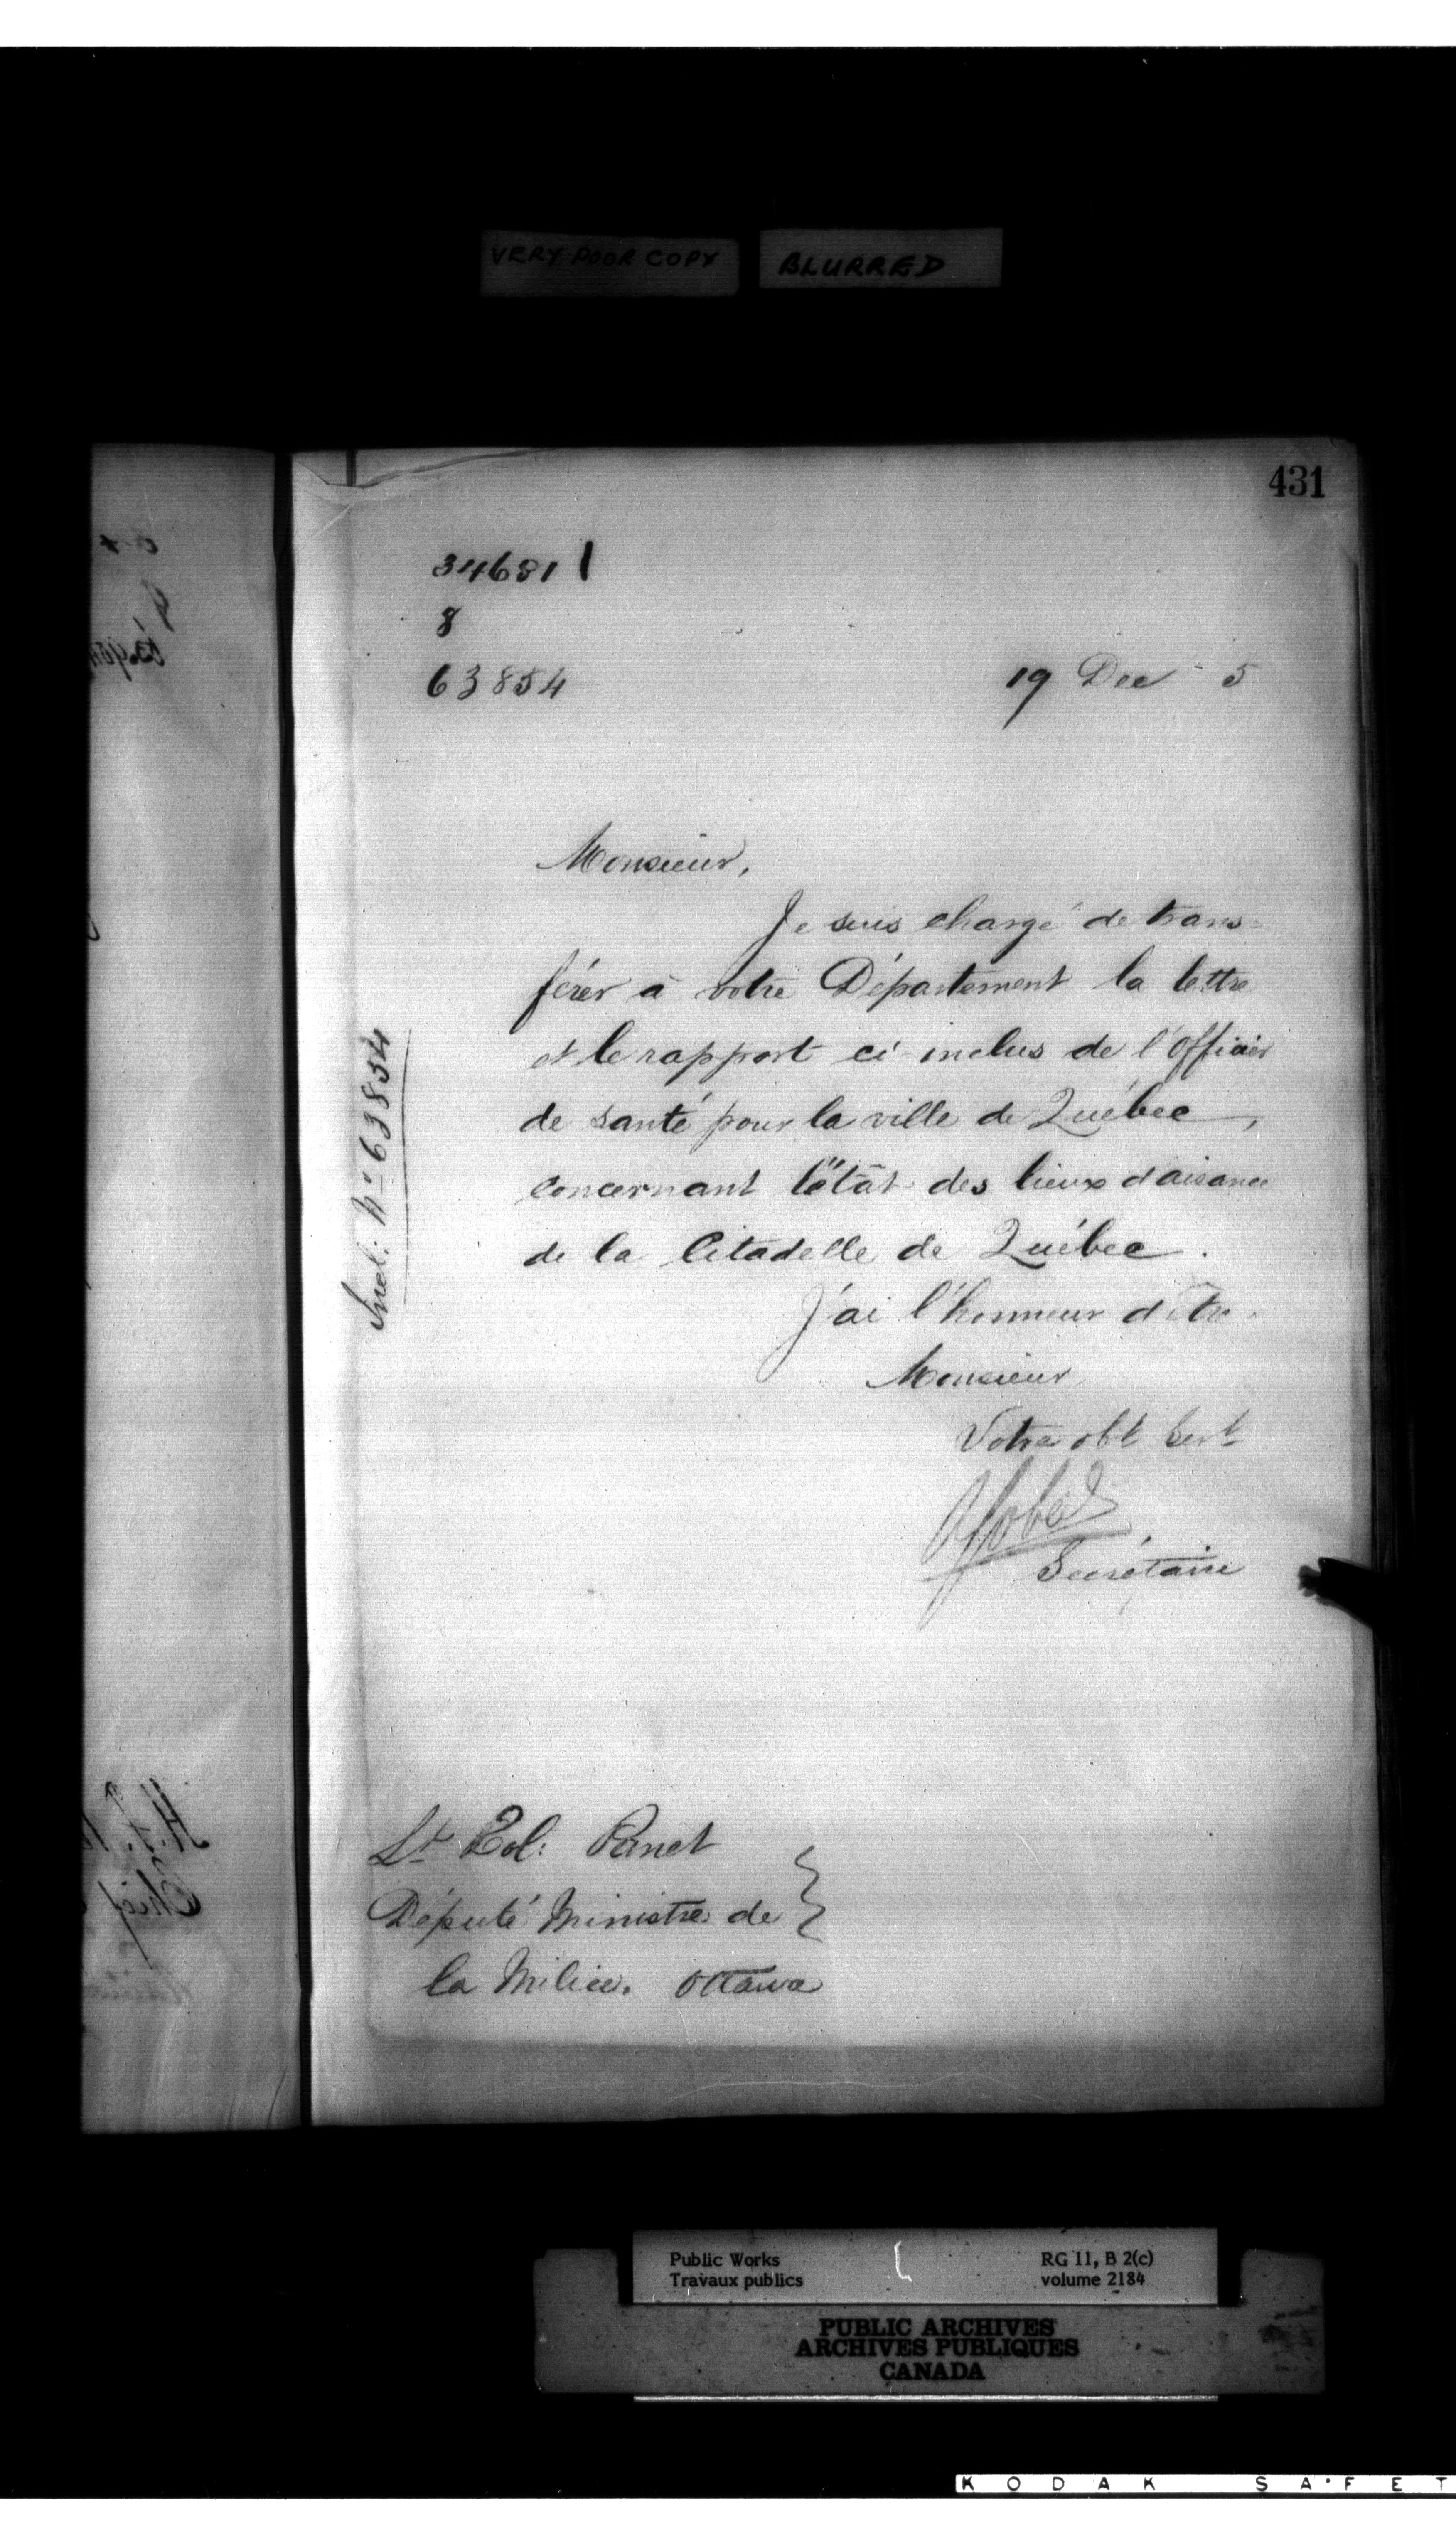 VERY POOR COPY BLURRED
431
34681
8
63854
19 Dec 5
Monsieur,
Je suis chargé de trans=
férer à votre Département la lettre
et le rapport ci-inclus de l'Officier
de santé pour la ville de Québec,
concernant l'état des lieux d'aisance
de la Citadelle de Québec.
J'ai l'honneur d'être
Monsieur
Votre obt Sert
Secrétaire
Incl: No 63854
Lt Col: Panet
Député Ministre de
la Milice. Ottawa
Public Works RG 11, B 2(c)
Travaux publics volume 2184
PUBLIC ARCHIVES
ARCHIVES PUBLIQUES
CANADA
KODAK SAFET